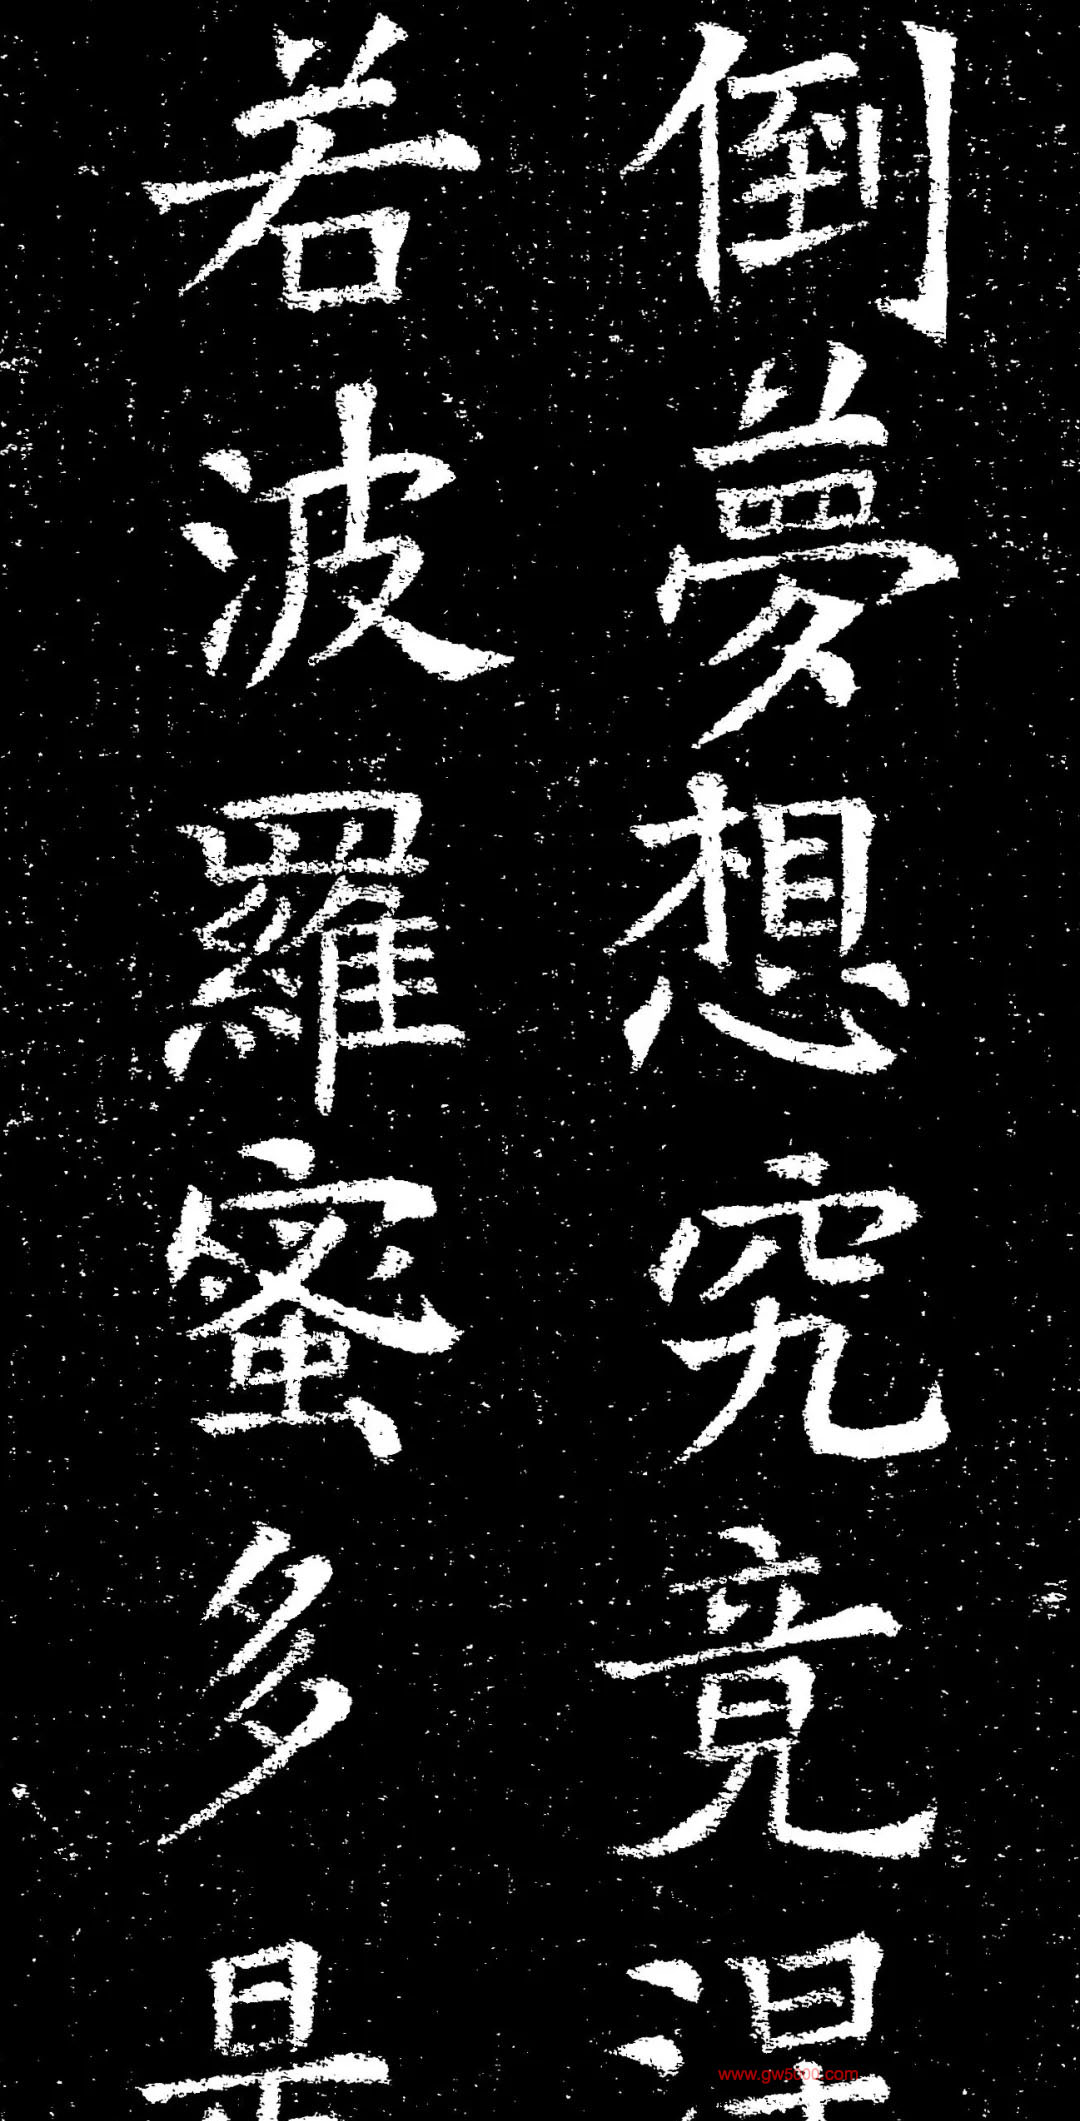 倒夢想究竟涅
若波羅蜜多是
www.gw5000.com